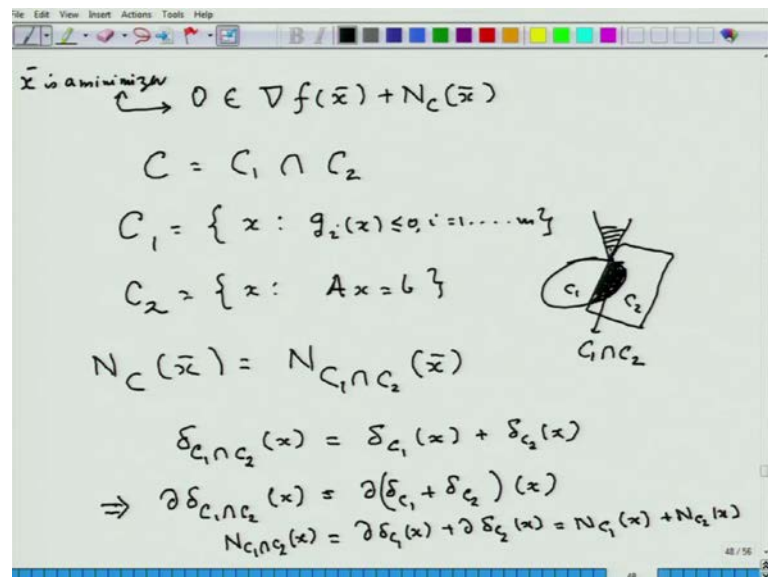 File Edit View Insert Actions Tools Help
B I
x̄ is a minimizer
0 ∈ ∇f(x̄) + N_C(x̄)
C = C₁ ∩ C₂
C₁ = { x : gᵢ(x) ≤ 0, i = 1 .... m }
C₂ = { x : Ax = b }
C₁ C₂
C₁ ∩ C₂
N_C(x̄) = N_{C₁∩C₂}(x̄)
δ_{C₁∩C₂}(x) = δ_{C₁}(x) + δ_{C₂}(x)
⇒ ∂δ_{C₁∩C₂}(x) = ∂(δ_{C₁} + δ_{C₂})(x)
N_{C₁∩C₂}(x) = ∂δ_{C₁}(x) + ∂δ_{C₂}(x) = N_{C₁}(x) + N_{C₂}(x)
48 / 56
48